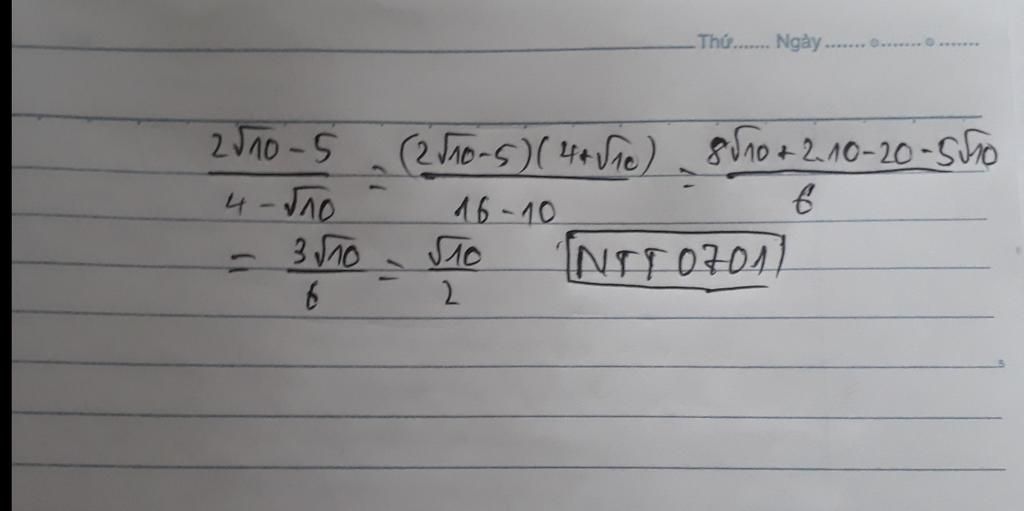 Thứ....... Ngày ....... o ....... o .......
(2√10 - 5)/(4 - √10) = (2√10 - 5)(4 + √10)/(16 - 10) = (8√10 + 2.10 - 20 - 5√10)/6
= 3√10/6 = √10/2 NTT0701